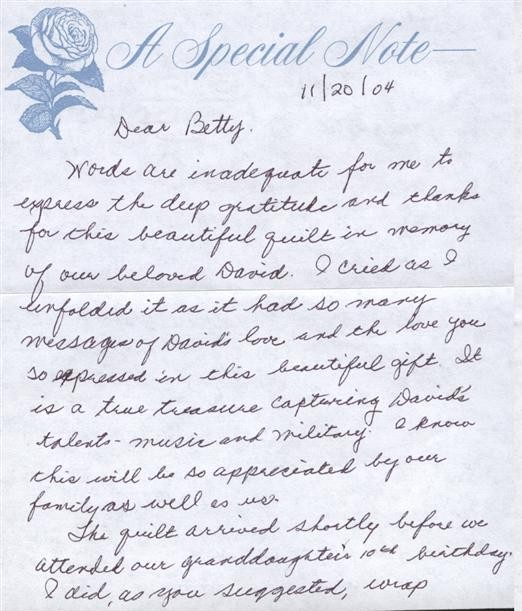 A Special Note—
11/20/04
Dear Betty.
Words are inadequate for me to
express the deep gratitude and thanks
for this beautiful quilt in memory
of our beloved David. I cried as I
unfolded it as it had so many
messages of David's love and the love you
so expressed in this beautiful gift. It
is a true treasure capturing David's
talents - music and military. I know
this will be so appreciated by our
family as well as us.
The quilt arrived shortly before we
attended our granddaughter's 10th birthday.
I did, as you suggested, wrap